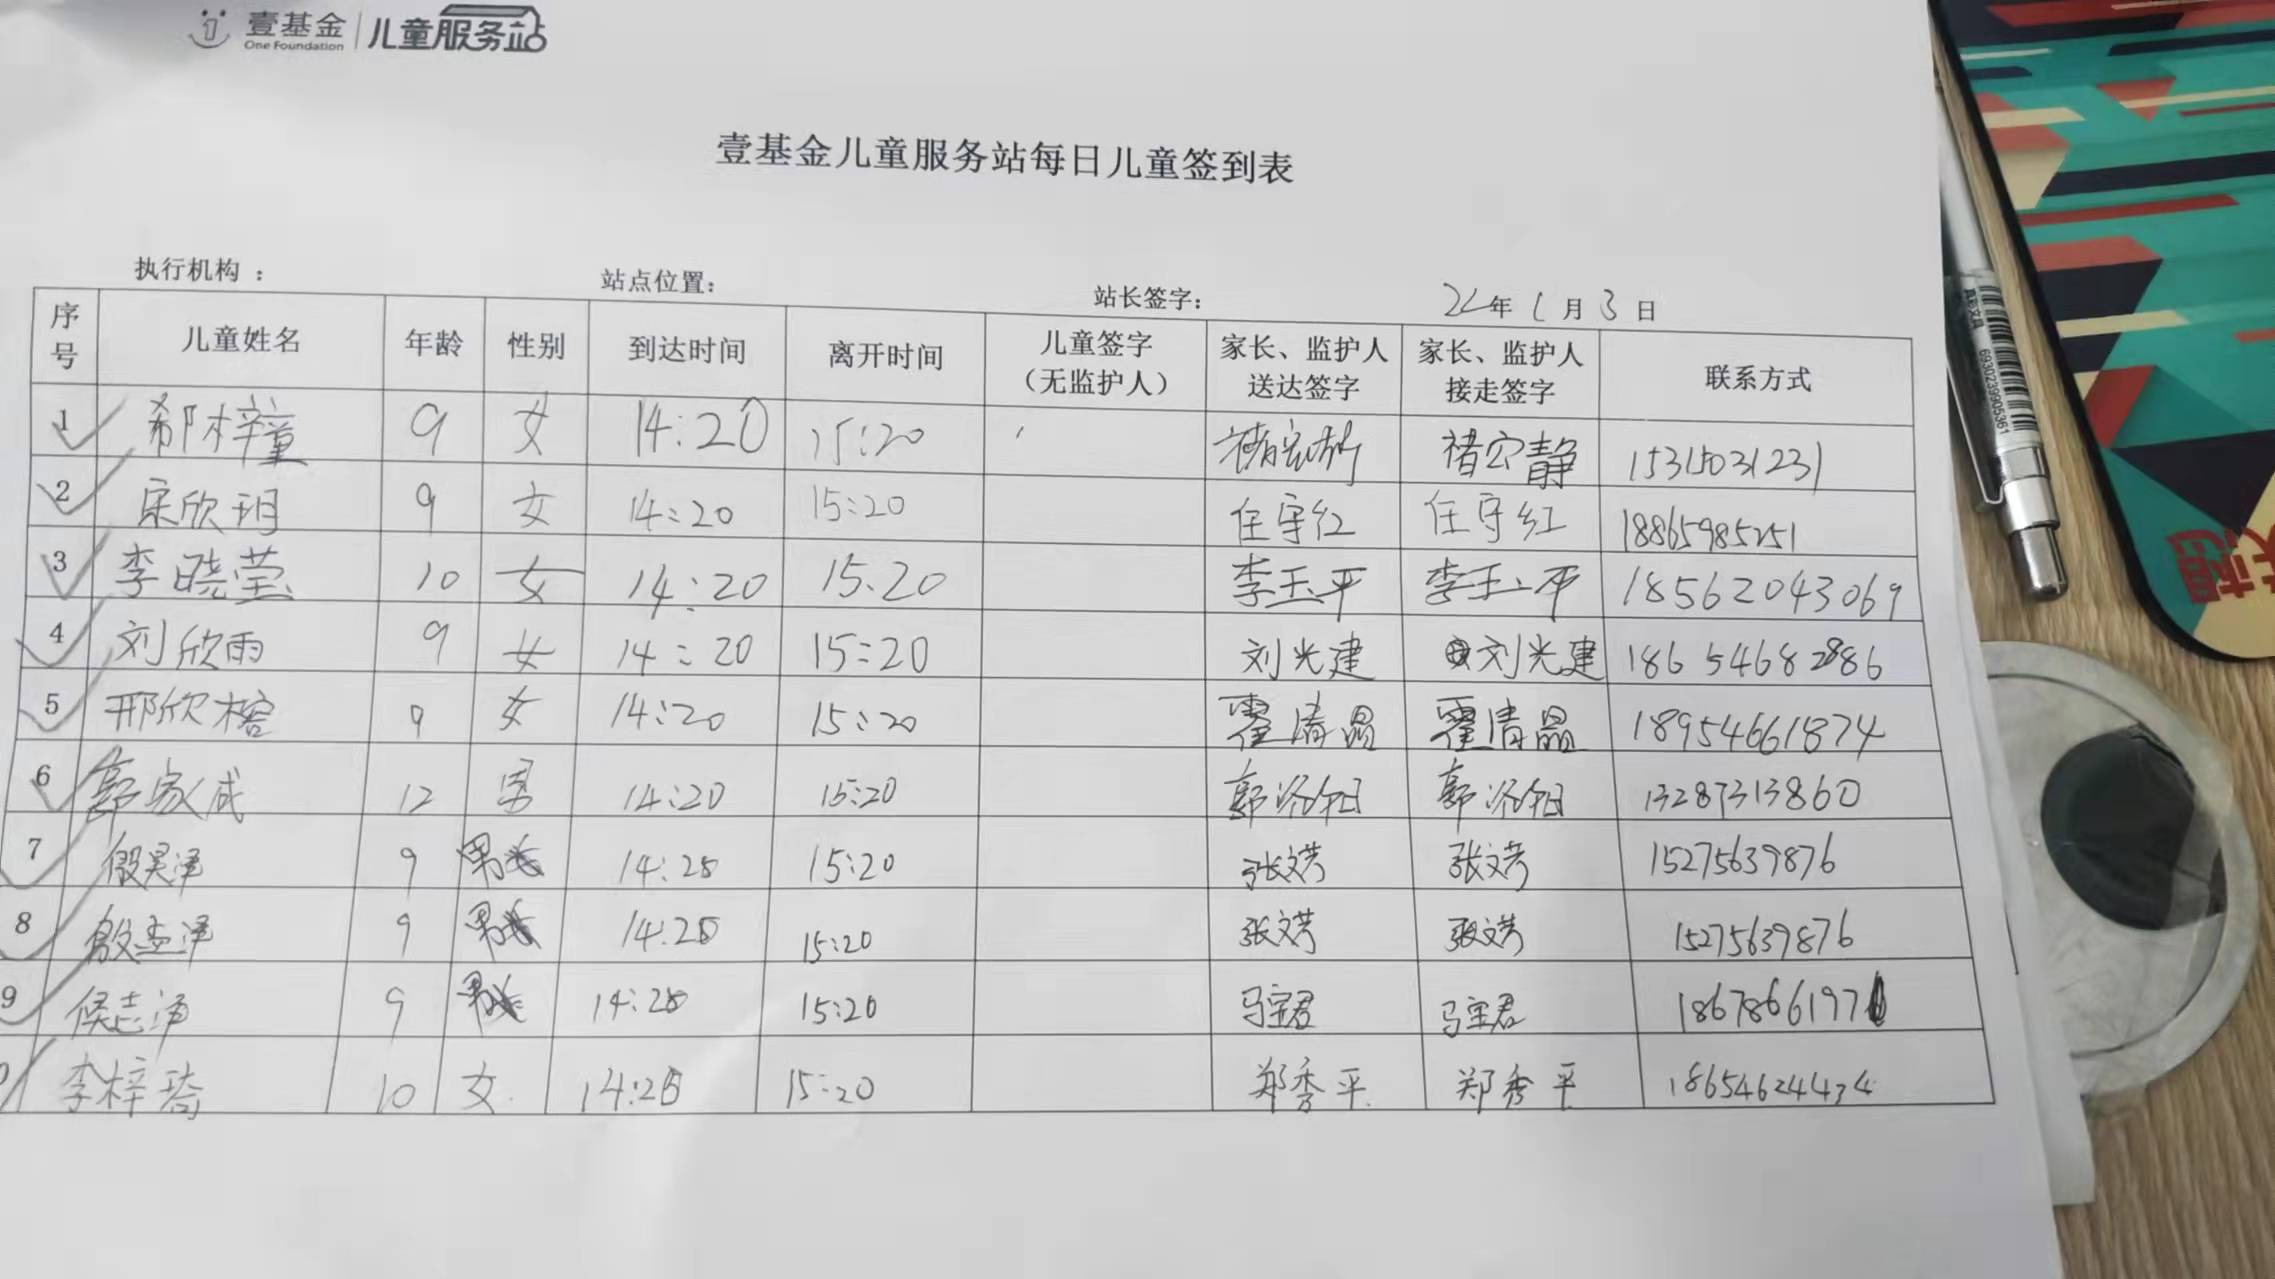 壹基金 儿童服务站
One Foundation
壹基金儿童服务站每日儿童签到表
执行机构 ： 站点位置： 站长签字： 22年 1月 3日
序号 儿童姓名 年龄 性别 到达时间 离开时间 儿童签字（无监护人） 家长、监护人送达签字 家长、监护人接走签字 联系方式
1 郗梓童 9 女 14:20 15:20 15315031231
2 宋欣玥 9 女 14:20 15:20 任守红 任守红 18865985251
3 李晓莹 10 女 14:20 15:20 李玉平 李玉平 18562043069
4 刘欣雨 9 女 14:20 15:20 刘光建 刘光建 18654682886
5 邢欣榕 9 女 14:20 15:20 霍清晶 霍清晶 18954661874
6 郭家成 12 男 14:20 15:20 13287313860
7 殷昊泽 9 男 14:20 15:20 张文芳 张文芳 15275639876
8 殷孟泽 9 男 14:20 15:20 张文芳 张文芳 15275639876
9 9 男 14:20 15:20 马宝君 马宝君
李梓琦 10 女 14:20 15:20 郑秀平 郑秀平 18654624434
6930239905361